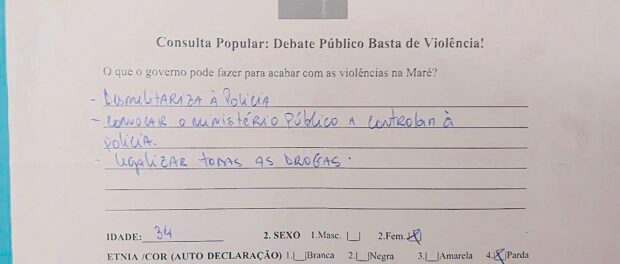 Consulta Popular: Debate Público Basta de Violência!
O que o governo pode fazer para acabar com as violências na Maré?
- Desmilitariza à Policia
- convocar o ministério Público a controlan à
policia.
- legalizar todas as drogas.
IDADE: 34 2. SEXO 1.Masc. |__| 2.Fem.|X|
ETNIA /COR (AUTO DECLARAÇÃO) 1.|__|Branca 2.|__|Negra 3.|__|Amarela 4.|X|Parda